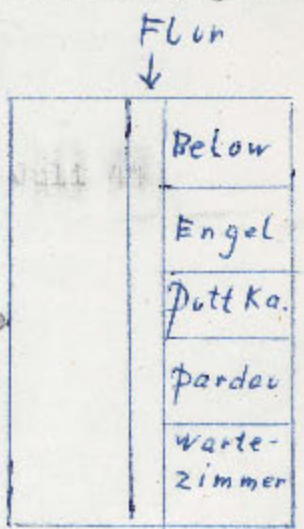 Flur
Below
Engel
Puttka.
Pardau
Warte-
zimmer